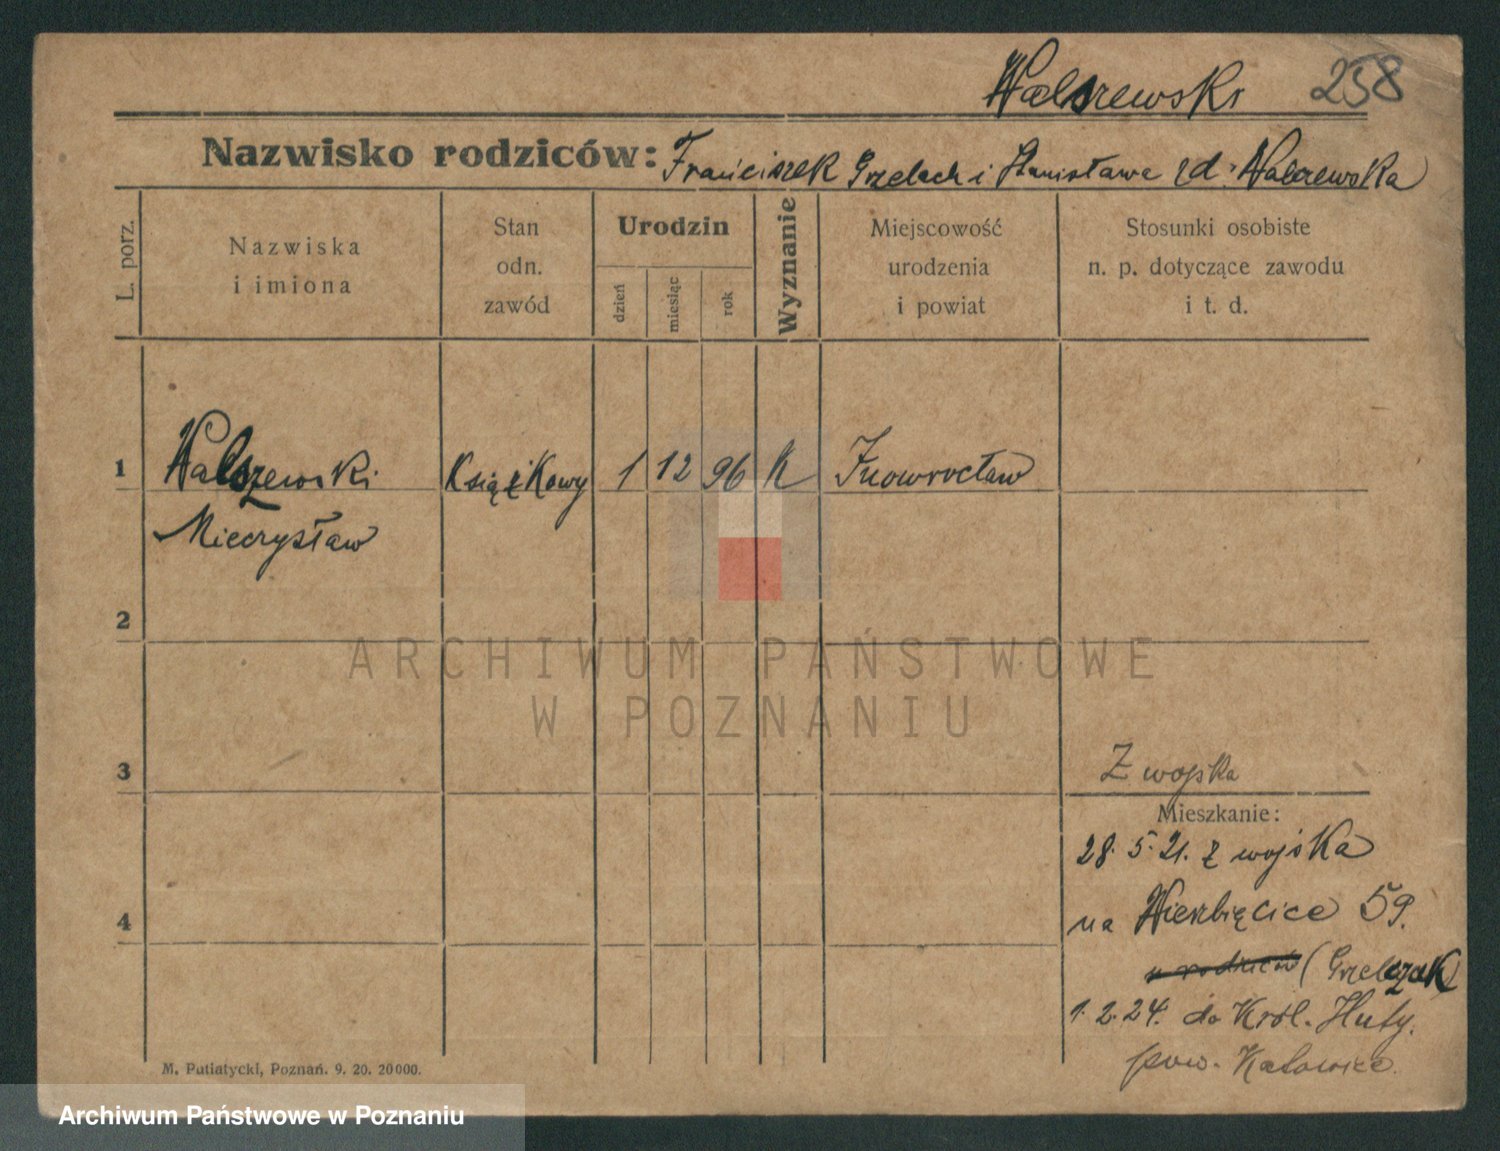 Walszewski 258
Nazwisko rodziców: Franciszek Grzelach i Stanisława zd. Walszewska
L. porz.
Nazwiska
i imiona
Stan
odn.
zawód
Urodzin
dzień
miesiąc
rok
Wyznanie
Miejscowość
urodzenia
i powiat
Stosunki osobiste
n. p. dotyczące zawodu
i t. d.
1 Walszewski Książkowy 1 12 96 K Inowrocław
Mieczysław
2
ARCHIWUM PAŃSTWOWE
W POZNANIU
3
Z wojska
Mieszkanie:
28. 5. 21. z wojska
4
na Wierzbięcice 59.
u rodziców (Grzelczak)
1. 2. 24. do Król. Huty.
pow. Katowice.
M. Putiatycki, Poznań. 9. 20. 20000.
Archiwum Państwowe w Poznaniu